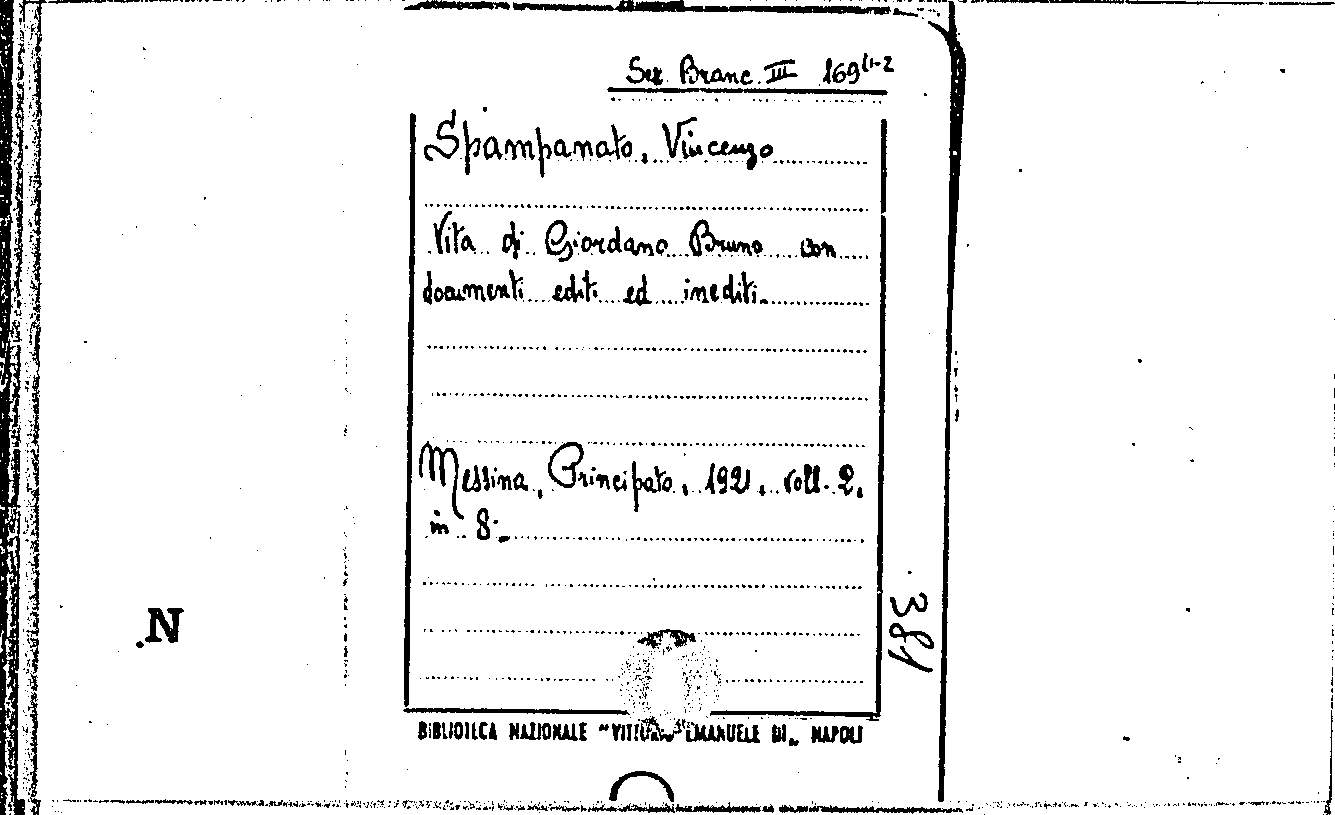 Sez. Branc. III 169(1-2
Spampanato, Vincenzo
Vita di Giordano Bruno con
documenti editi ed inediti.
Messina, Principato, 1921, voll. 2,
in 8°.
389
N
BIBLIOTECA NAZIONALE "VITTORIO EMANUELE III" NAPOLI